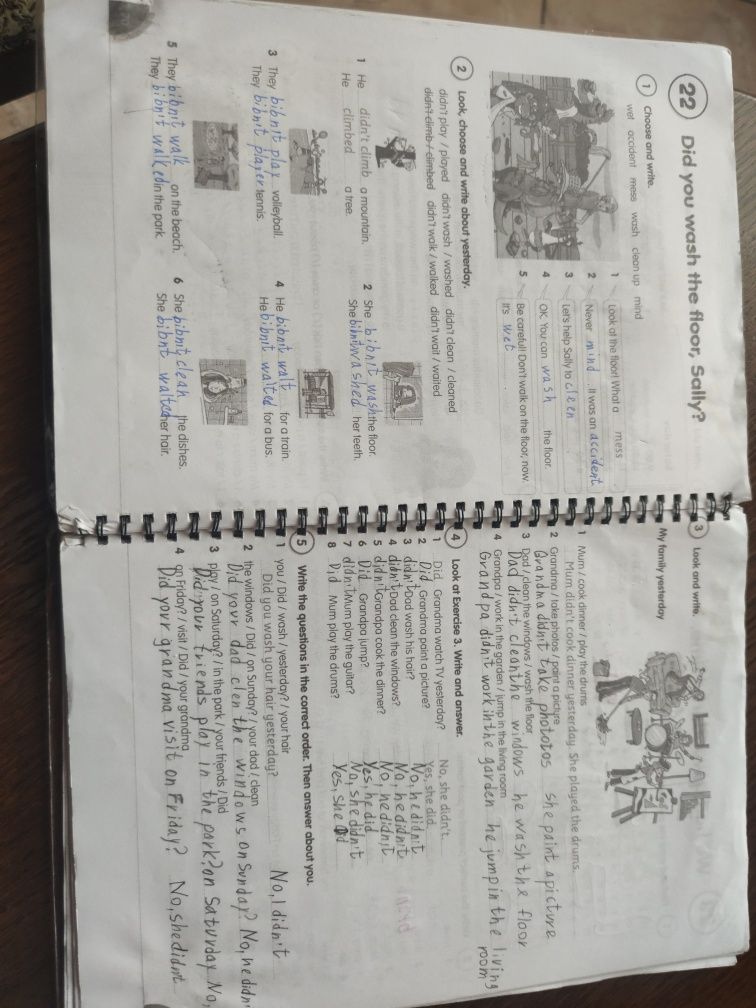 22 Did you wash the floor, Sally?
1 Choose and write.
wet accident mess wash clean up mind
1 Look at the floor! What a mess.
2 Never mind. It was an accident.
3 Let's help Sally to cleen.
4 OK. You can wash the floor.
5 Be careful! Don't walk on the floor, now.
It's wet.
2 Look, choose and write about yesterday.
didn't play / played didn't wash / washed didn't clean / cleaned
didn't climb / climbed didn't walk / walked didn't wait / waited
1 He didn't climb a mountain.
He climbed a tree.
2 She bibn't wash the floor.
She bibnt washed her teeth.
3 They bibn't play volleyball.
They bibn't player tennis.
4 He bibn't wait for a train.
He bibn't waited for a bus.
5 They bibn't walk on the beach.
They bibn't walked in the park.
6 She bibn't clean the dishes.
She bibnt waited her hair.
3 Look and write.
My family yesterday
1 Mum / cook dinner / play the drums
Mum didn't cook dinner yesterday. She played the drums.
2 Grandma / take photos / paint a picture
Grandma dibnt take phototos she paint a picture
3 Dad / clean the windows / wash the floor
Dad didn't clean the windows he wash the floor
4 Grandpa / work in the garden / jump in the living room
Grandpa didn't work in the garden he jump in the living
room
4 Look at Exercise 3. Write and answer.
1 Did Grandma watch TV yesterday? No, she didn't.
2 Did Grandma paint a picture? Yes, she did.
3 didn't Dad wash his hair? No, he didn't
4 didn't Dad clean the windows? No, he didn't
5 didn't Grandpa cook the dinner? No, he didn't
6 Did Grandpa jump? Yes, he did
7 didn't Mum play the guitar? No, she didn't
8 Did Mum play the drums? Yes, she did
5 Write the questions in the correct order. Then answer about you.
1 you / Did / wash / yesterday? / your hair
Did you wash your hair yesterday? No, I didn't
2 the windows / Did / on Sunday? / your dad / clean
Did your dad clen the windows on Sunday? No, he didn't
3 play / on Saturday? / in the park / your friends / Did
Did your friends play in the park? on Saturday No,
4 go Friday? / visit / Did / your grandma
Did your grandma visit on Friday? No, she didnt